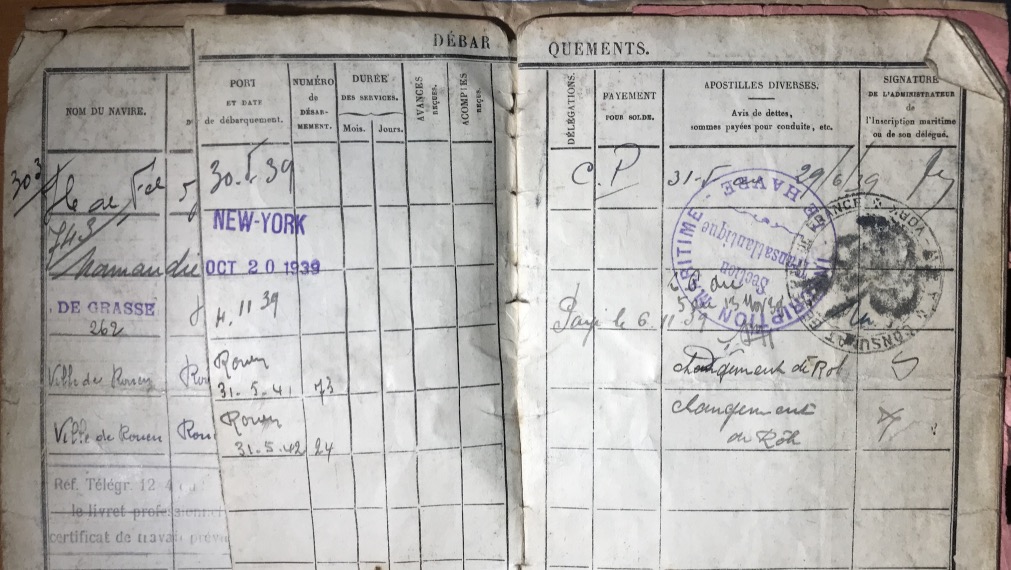 DÉBAR QUEMENTS.
NOM DU NAVIRE.
PORT
ET DATE
de débarquement.
NUMÉRO
de
DÉSAR-
MEMENT.
DURÉE
DES SERVICES.
Mois. Jours.
AVANCES
REÇUES.
ACOMPTES
REÇUS.
DÉLÉGATIONS.
PAYEMENT
POUR SOLDE.
APOSTILLES DIVERSES.
Avis de dettes,
sommes payées pour conduite, etc.
SIGNATURE
DE L'ADMINISTRATEUR
de
l'Inscription maritime
ou de son délégué.
303
Ile de
30.5.39
C.P.
29/6/39
INSCRIPTION MARITIME
HAVRE
Section
Transatlantique
743
Normandie
NEW-YORK
OCT 20 1939
FRANCE
CONSULAT
DE GRASSE
262
4.11 39
Payé le 6.11 39
Ville de Rouen
Rouen
31.5.41 73
Changement de Rôl
Ville de Rouen
Rouen
31.5.42 24
changement
de Rôle
Réf. Télégr. 12
le livret professionnel
certificat de travail